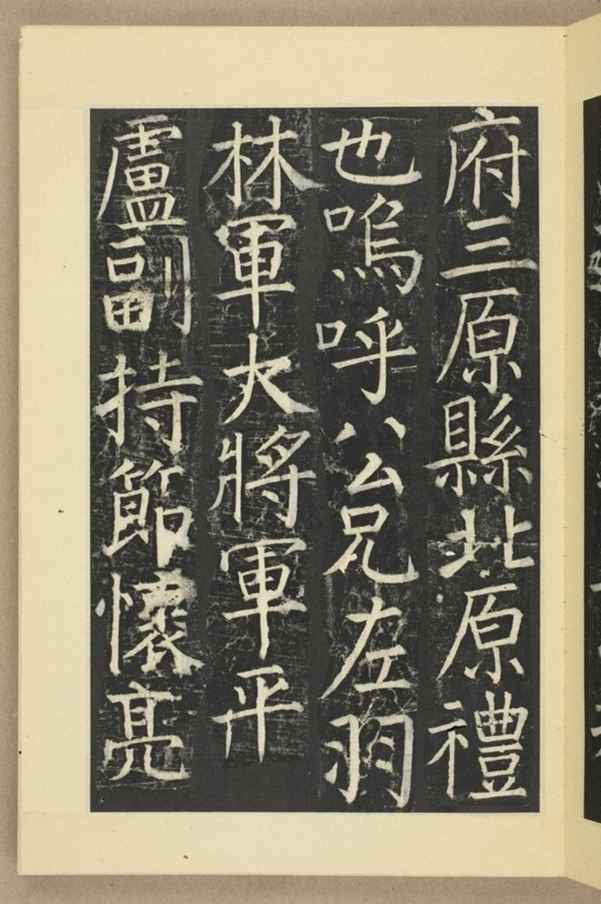 府三原縣北原禮
也嗚呼公兄左羽
林軍大將軍平
盧副持節懷亮